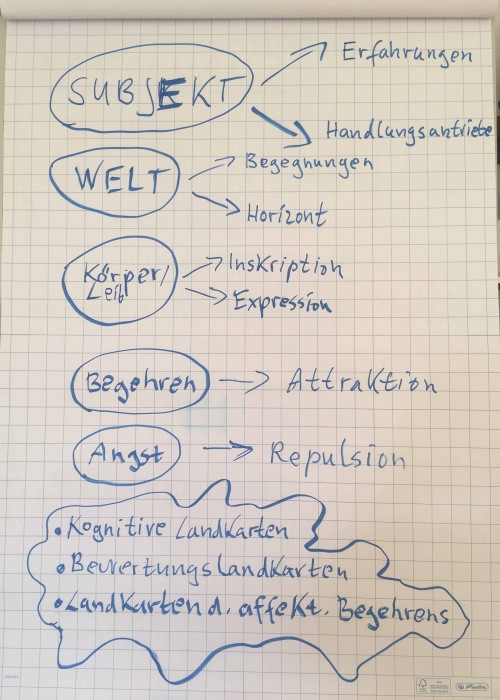 SUBJEKT
Erfahrungen
Handlungsantriebe
WELT
Begegnungen
Horizont
Körper/
Leib
Inskription
Expression
Begehren
Attraktion
Angst
Repulsion
• Kognitive Landkarten
• Bewertungslandkarten
• Landkarten d. affekt. Begehrens